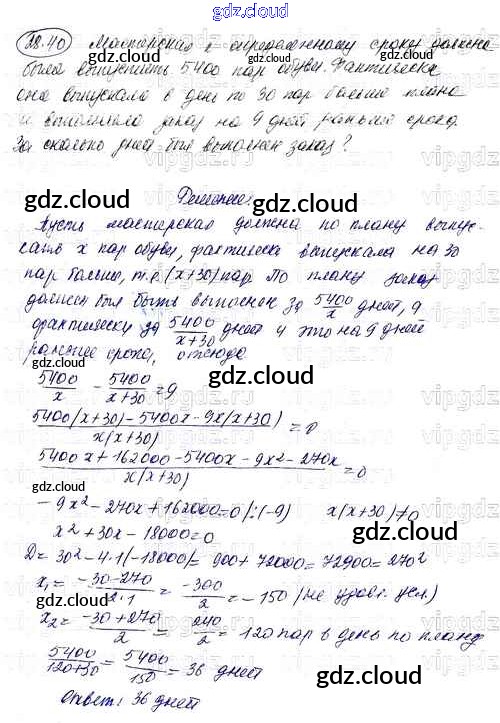 gdz.cloud
28.40 Мастерская к определенному сроку должна
была выпустить 5400 пар обуви. Фактически
она выпускала в день по 30 пар больше плана
и выполнила заказ на 9 дней раньше срока.
За сколько дней был выполнен заказ?
gdz.cloud gdz.cloud
Решение:
Пусть мастерская должна по плану выпус-
сать x пар обуви, фактически выпускала на 30
пар больше, т.е. (x+30) пар. По плану заказ
должен был быть выполнен за 5400/x дней, а
фактически за 5400/(x+30) дней и это на 9 дней
раньше срока, отсюда
gdz.cloud
5400/x - 5400/(x+30) = 9
gdz.cloud
(5400(x+30)-5400x-9x(x+30))/(x(x+30)) = 0
(5400x+162000-5400x-9x²-270x)/(x(x+30)) = 0
gdz.cloud
-9x²-270x+162000=0 |:(-9) x(x+30)≠0
x²+30x-18000=0
gdz.cloud
D=30²-4·1·(-18000)=900+72000=72900=270²
x₁=(-30-270)/(2·1)=-300/2=-150 (не удовл. усл.)
gdz.cloud
x₂=(-30+270)/2=240/2=120 пар в день по плану
5400/(120+30)=5400/150=36 дней
gdz.cloud
Ответ: 36 дней
gdz.cloud